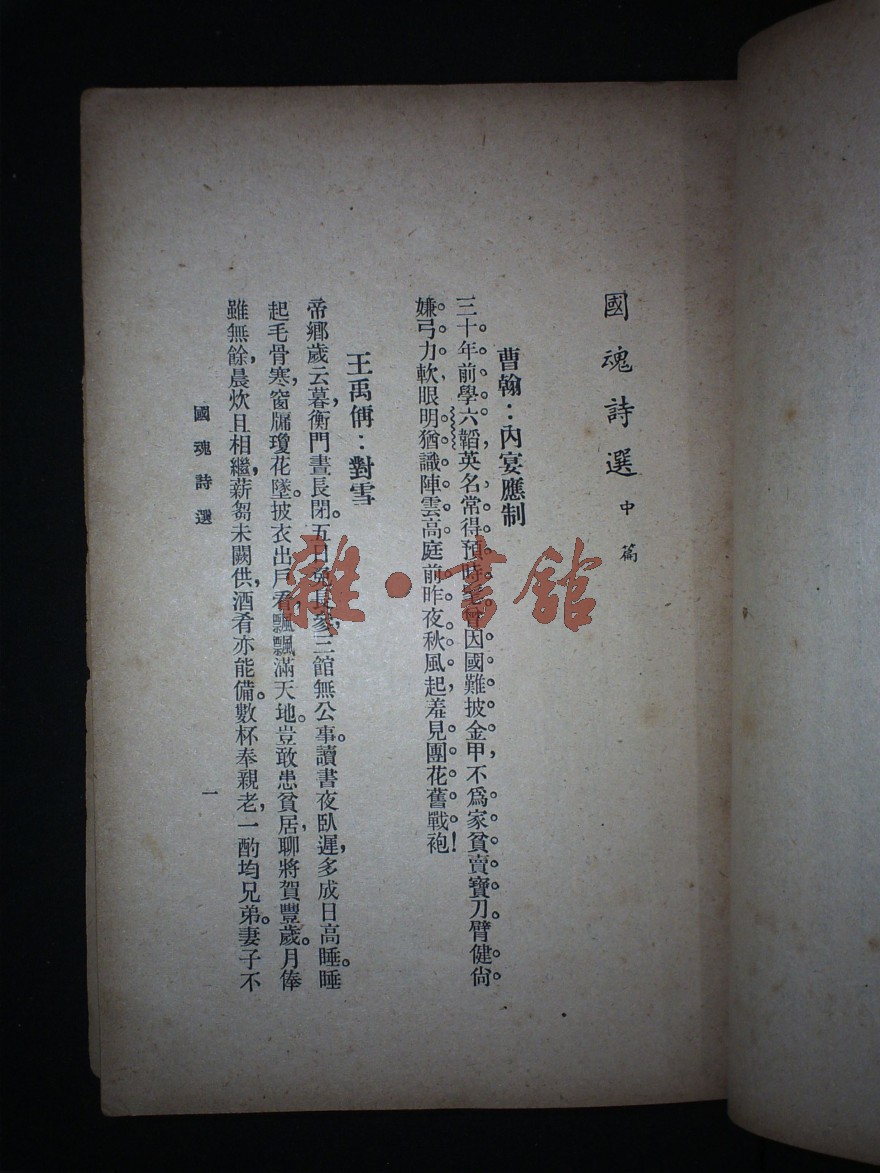 國魂詩選 中篇
曹翰：內宴應制
三十年前學六韜，英名常得預時髦。曾因國難披金甲，不爲家貧賣寶刀。臂健尙
嫌弓力軟，眼明猶識陣雲高。庭前昨夜秋風起，羞見團花舊戰袍！
王禹偁：對雪
帝鄉歲云暮，衡門晝長閉。五日免長參，三館無公事。讀書夜臥遲，多成日高睡。睡
起毛骨寒，窗牖瓊花墜。披衣出戶看，飄飄滿天地。豈敢患貧居，聊將賀豐歲。月俸
雖無餘，晨炊且相繼。薪芻未闕供，酒肴亦能備。數杯奉親老，一酌均兄弟。妻子不
國魂詩選
一
雜·書館